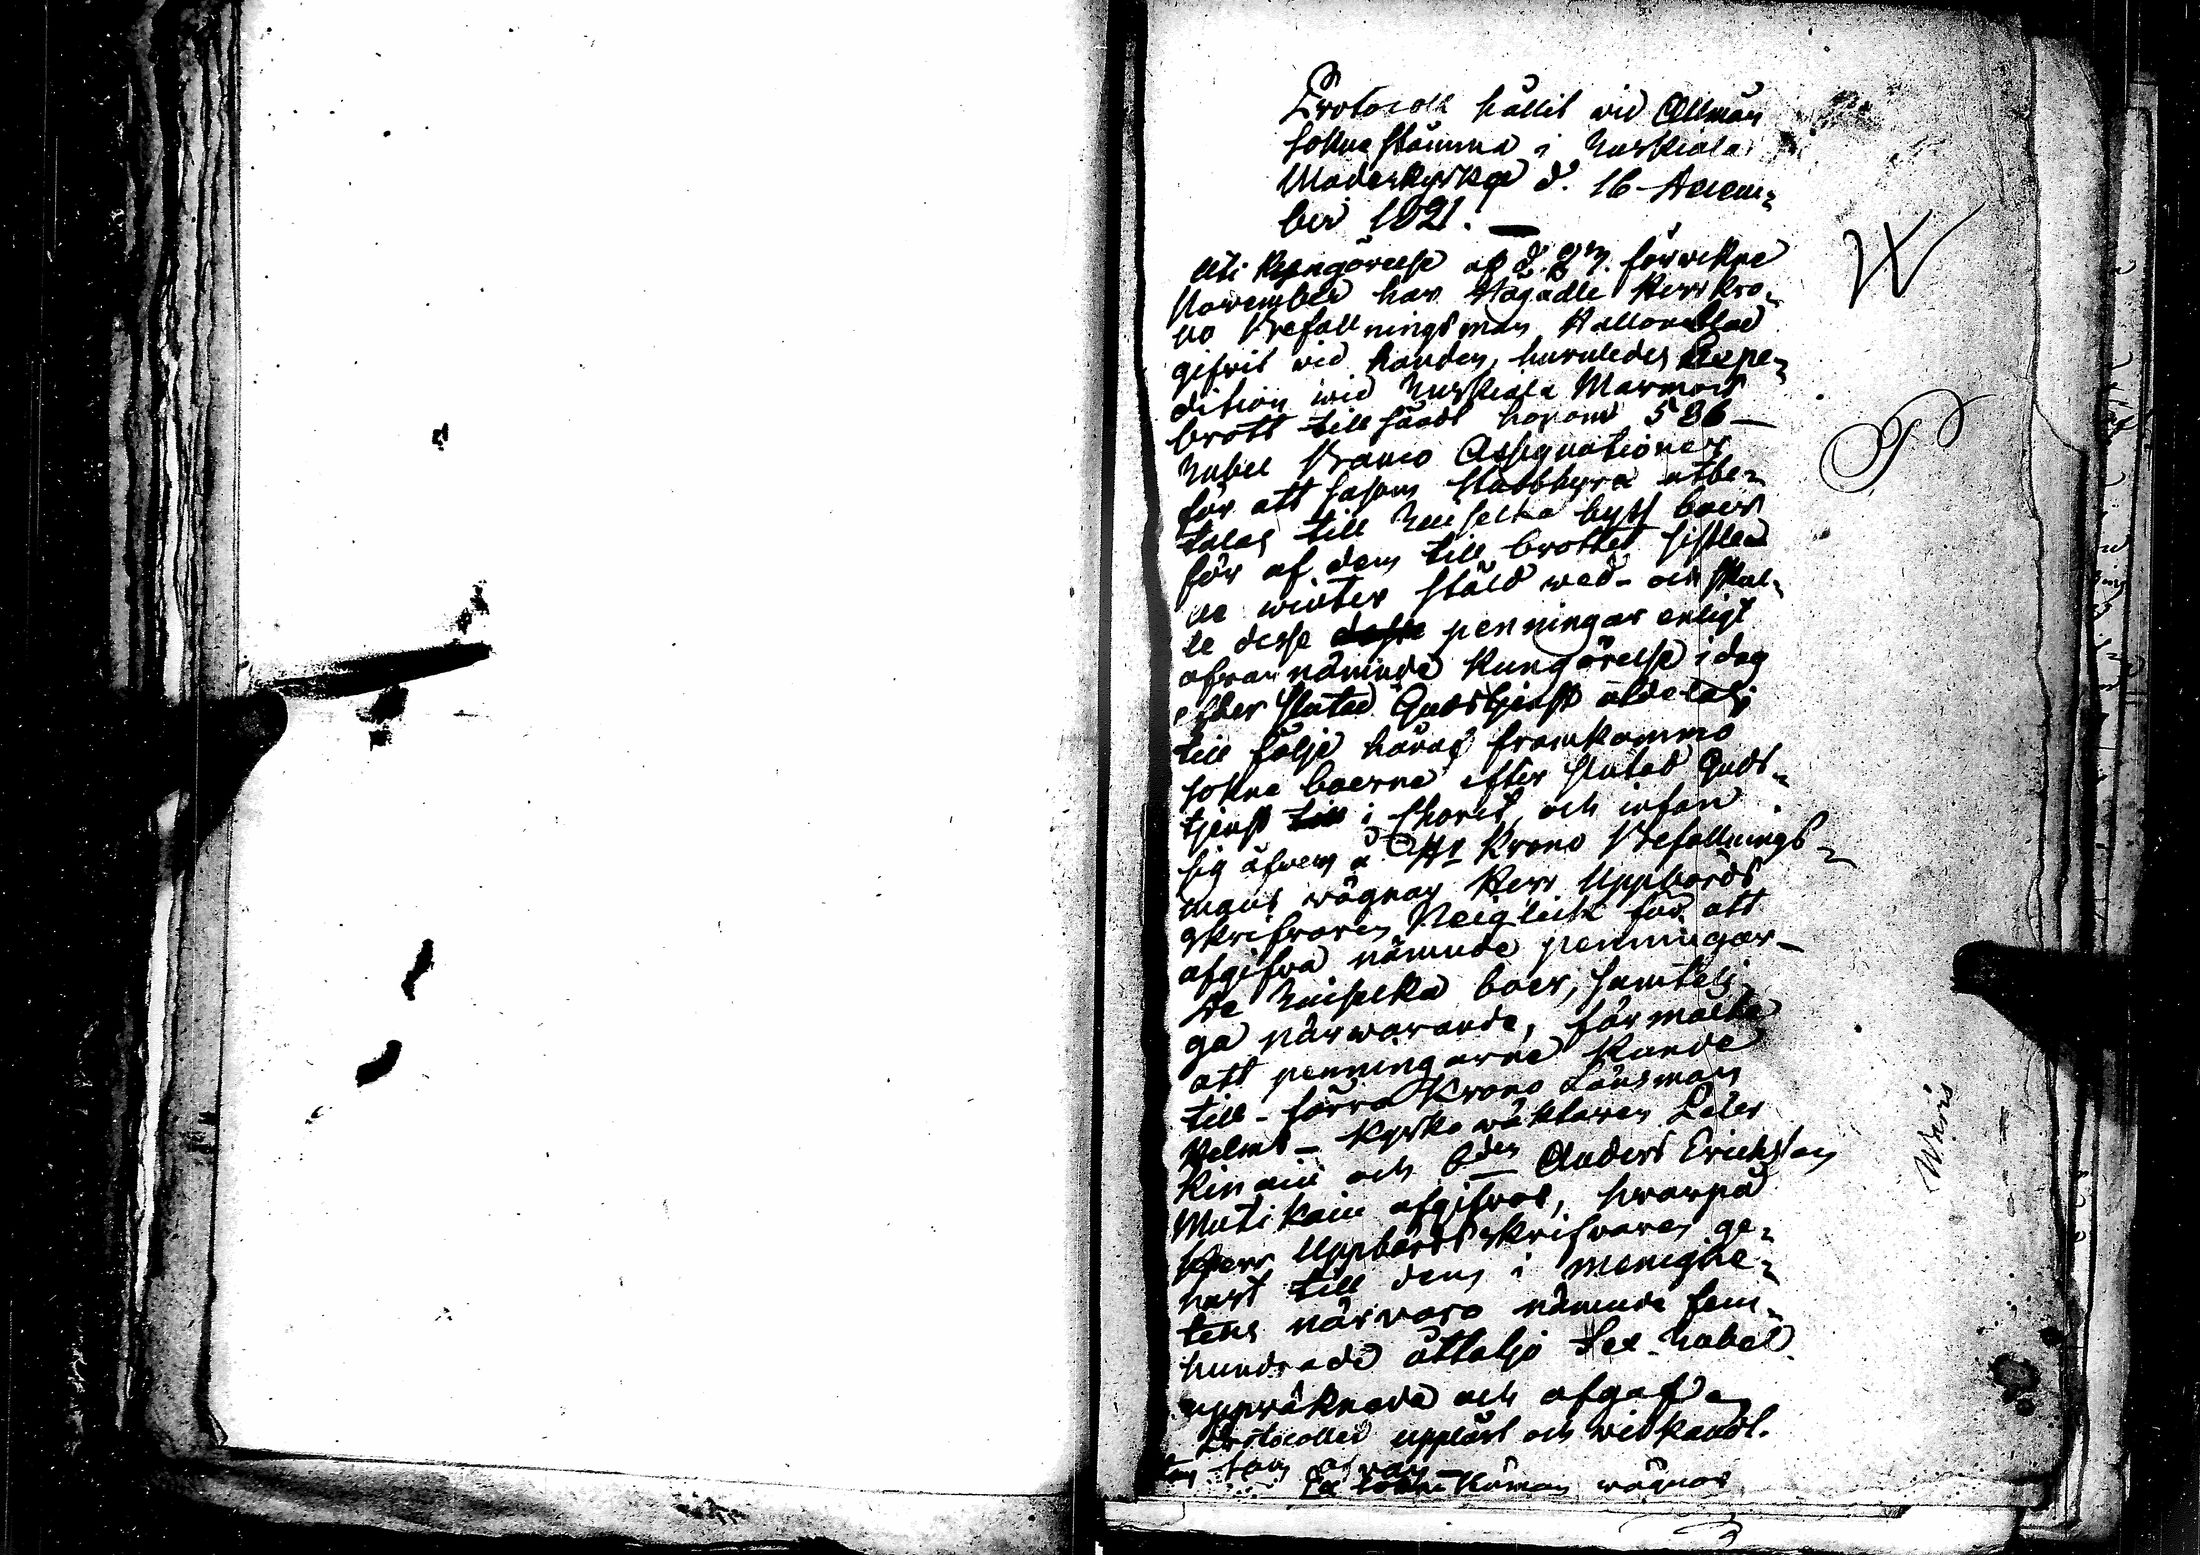 Protocoll hållit vid Allmän
sokne stämma i Ruskiala
Moderkyrka d. 16 Decem-
ber 1821. —
Uti kungörelse af d. förvikne
November har Högädle Herr Kro-
no Befallningsman
gifvit vid handen, huruledes Expe-
dition vid Ruskiala Marmor
brott tillsändt honom 586 —
Rubel Banco Assignationer
för att såsom utbe-
talas till Ruiselka bys boer
för af dem till brottet sistled-
ne winter ståld wed - och skul-
le desse penningar enligt
ofvannämnde kungörelse i dag
efter slutad Gudstjenst utdelas;
till följe häraf framkommo
sokne boerne efter slutad Guds-
tjenst i Choret, och infan
sig äfven å Hr Krono Befallnings-
mans vägnar Herr Uppbörds
skrifvaren Neiglick för att
afgifva nämnde penningar —
De Ruiselka boer, samteli-
ga närwarande, förmälte
att penningarne kunde
till - förra Krono Länsman
Helms - kyrko wäktaren Peter
Kinain och 6den Anders Erichsson
Mutikain afgifvas, hvarpå
Herr Uppbördsskrifvaren ge-
nast till dem i menighe-
tens närvaro nämnde fem-
hundrade åttatijo sex Rubel
uppräknade och afgaf
Protocollet uppläst och vidkändt.
som ofvan
På Sokne männ vägnar